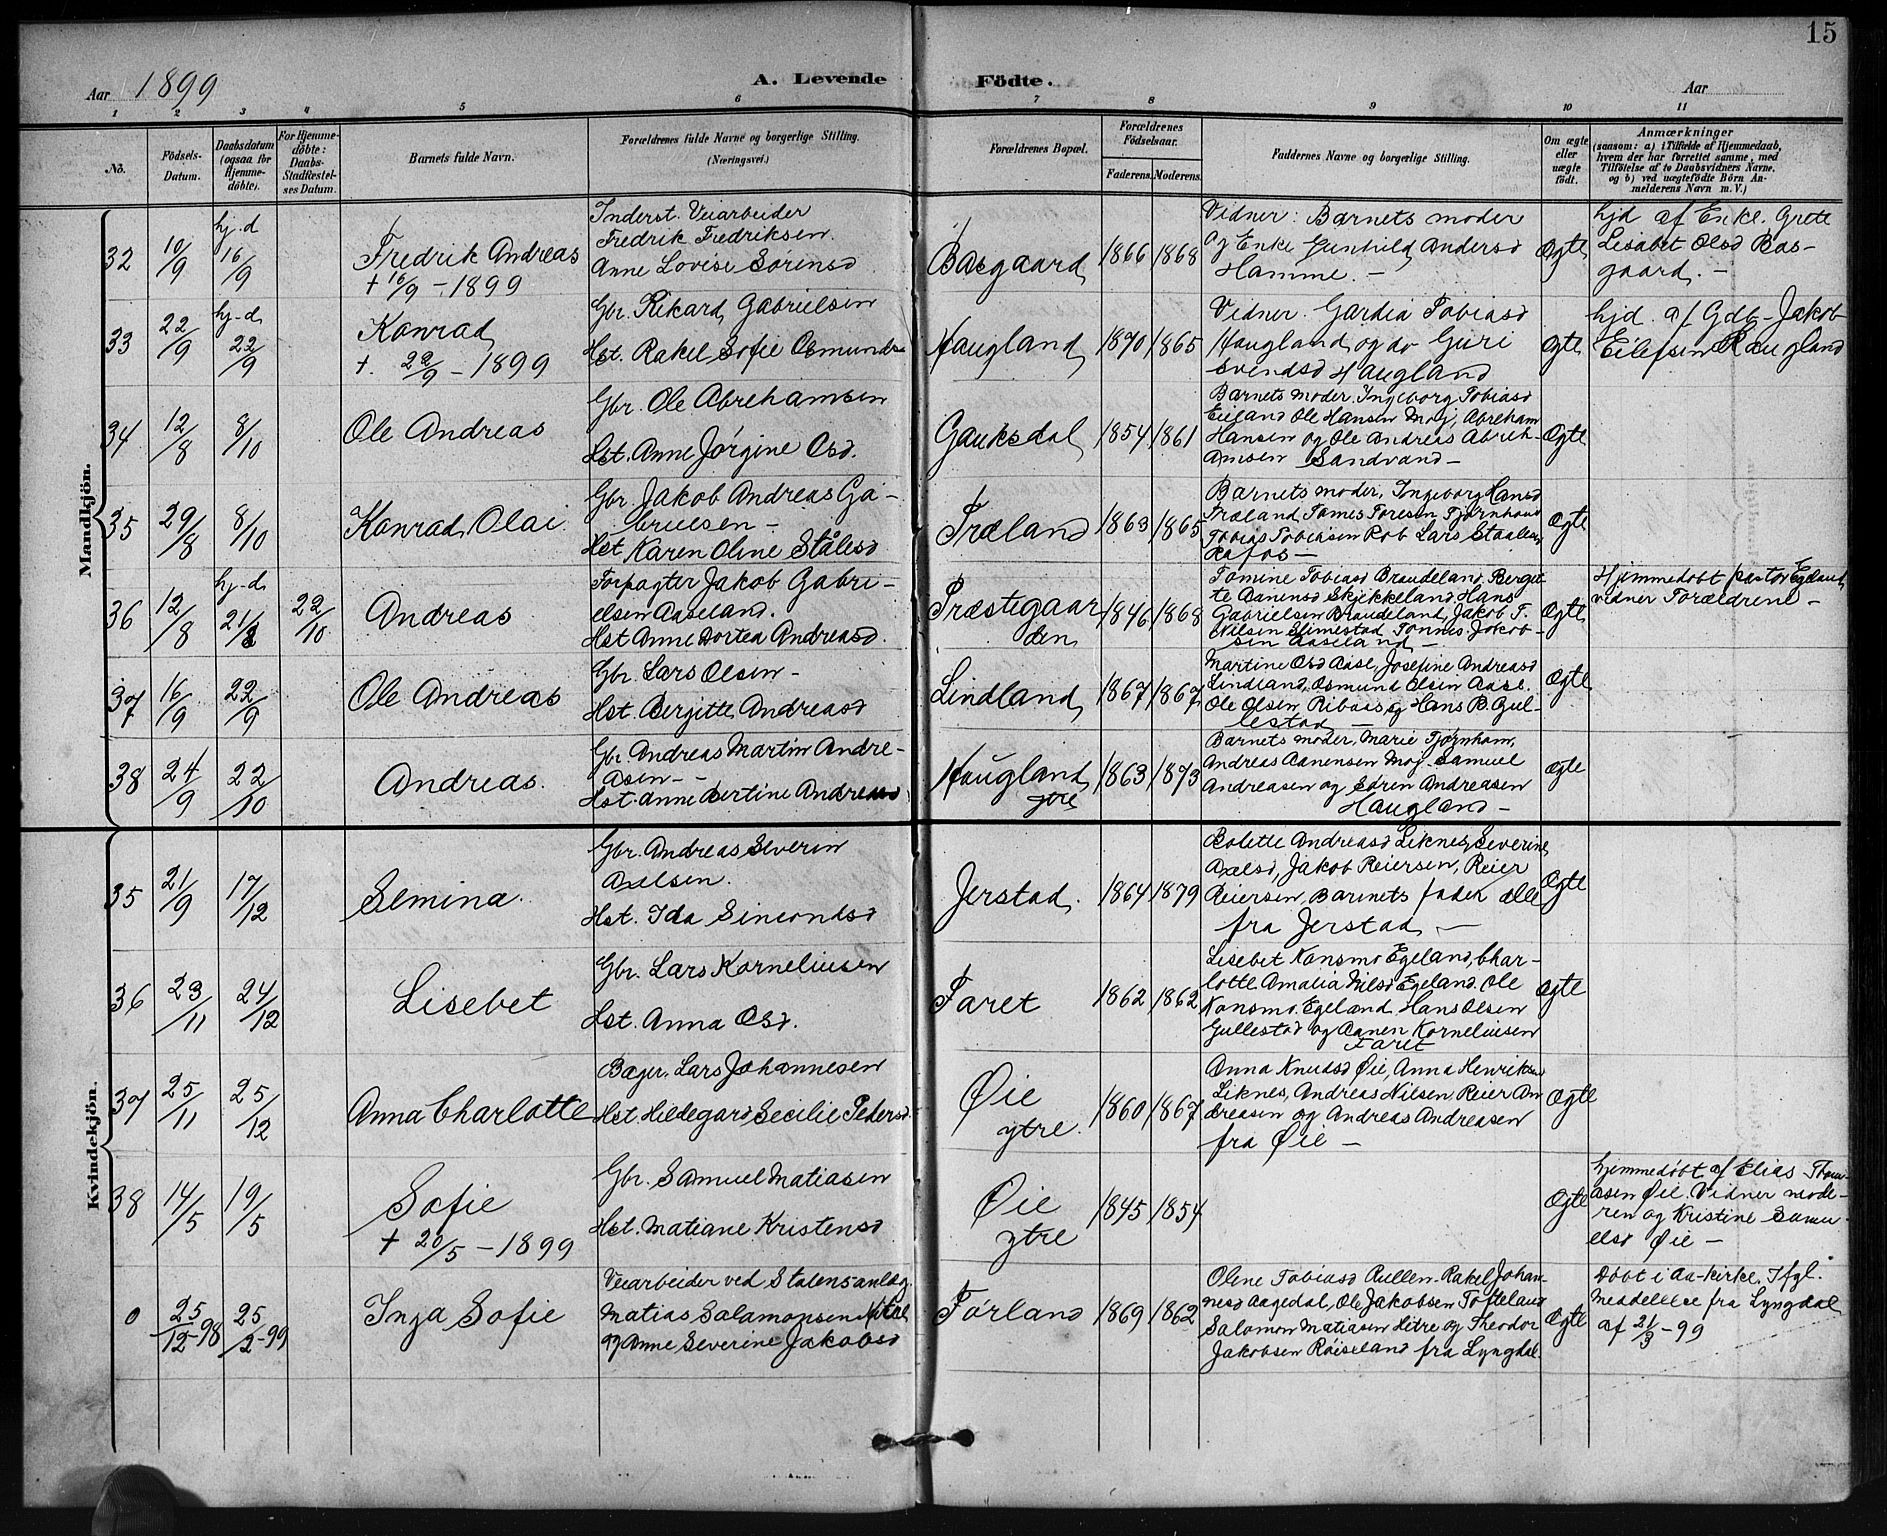 15
Aar 1899
A. Levende Födte.
Aar
1 2 3 4 5 6 7 8 9 10 11
No.
Födsels-Datum.
Daabsdatum (ogsaa for Hjemme-döbte).
For Hjemme-döbte: Daabs-Stadfæstel-ses Datum.
Barnets fulde Navn.
Forældrenes fulde Navne og borgerlige Stilling. (Næringsvei.)
Forældrenes Bopæl.
Forældrenes Födselsaar.
Faderens. Moderens.
Faddernes Navne og borgerlige Stilling.
Om ægte eller uægte födt.
Anmærkninger
(saasom: a) i Tilfælde af Hjemmedaab,
hvem der har forrettet samme, med
Tilföielse af to Daabsvidners Navne,
og b) ved uægtefödte Börn An-
melderens Navn m. V.)
Mandkjön.
32 10/9 hj-d 16/9
Fredrik Andreas
+ 16/9 - 1899
Inderst. Veiarbeider
Fredrik Fredriksen.
Anne Lovise Sorensd
Basgaard 1866 1868
Vidner: Barnets moder
og Enke Gunhild Andersd
Hamme. -
Ægte
hjd af Enke. Grete
Lisabet Olsd Bas-
gaard. -
33 22/9 hj-d 22/9
Konrad
+. 22/9 - 1899
Gbr. Rikard Gabrielsen
Hst. Rakel Sofie Osmunds
Haugland 1870 1865
Vidner. Gardia Tobiasd
Haugland og Guri
Svendsd Haugland
Ægte
hjd. af Gdb- Jakob
Eilefsen Haugland
34 12/8 8/10
Ole Andreas
Gbr. Ole Abrehamsen
Hst. Anne Jørgine Osd.
Gauksdal 1854 1861
Barnets moder. Ingeborg Tobiasd
Eiland Ole Hansen Moj, Abreham
Hansen og Ole Andreas Abreh-
amsen Sandvand -
Ægte
35 29/8 8/10
Konrad Olai
Gbr. Jakob Andreas Ga-
brielsen -
Hst Karen Oline Stålesd
Træland 1863 1865
Barnets moder, Ingeborg Hansd
Træland Tomes Toresen Tjørnhom
Tobias Tobiasen Rob Lars Staalesen
Rafos -
Ægte
36 12/8 hj-d 21/8 22/10
Andreas
Forpagter Jakob Gabri-
elsen Aaseland.
Hst Anne Dortea Andreasd.
Præstegaar
den 1846 1868
Tomine Tobiasd Braudeland, Bergit
te Aanensd Skikkeland Hans
Gabrielsen Braudeland, Jakob T.
Nilsen Slimestad Tønnes Jakob-
sen Aaseland -
Ægte
Hjemmedøbt pastor Egeland,
vidner Forældrene -
37 16/9 22/9
Ole Andreas
Gbr. Lars Olsen -
Hst. Bergitte Andreasd
Lindland 1867 1867
Martine Osd Aase, Josefine Andreasd
Lindland, Osmund Olsen Aase,
Ole Olsen Ribaas og Hans B. Gul-
lestad -
Ægte
38 24/9 22/10
Andreas.
Gbr. Andreas Martin Andre-
asen -
Hst. Anne Bertine Andreasd
Haugland
ytre 1863 1873
Barnets moder, Marie Tjørnham,
Andreas Aanensen Moj, Samuel
Andreasen og Søren Andreasen
Haugland -
Ægte
Kvindekjön.
35 21/9 17/12
Semina.
Gbr. Andreas Severin
Axelsen.
Hst. Ida Simondsd
Jerstad. 1864 1879
Bolette Andreasd Liknes, Severine
Axelsd, Jakob Reiersen, Reier
Reiersen, Barnets fader alle
fra Jerstad -
Ægte
36 23/11 24/12
Lisebet
Gbr. Lars Korneliusen
Hst. Anna Osd.
Faret 1862 1862
Lisebet Konsmo Egeland, Char-
lotte Amalia Nilsd Egeland. Ole
Konsmo Egeland, Hans Olsen
Gullestad og Aanen Korneliusen
Faret
Ægte
37 25/11 25/12
Anna Charlotte
Bager. Lars Johannesen
Hst. Hildegard Secilie Pedersd
Øie
ytre. 1860 1867
Anna Knudsd Øie, Anna Henriksen
Liknes, Andreas Nilsen, Reier An
dreasen og Andreas Andreasen
fra Øie -
Ægte
38 14/5 19/5
Sofie
+ 20/5 - 1899
Gbr. Samuel Matiasen
Hst. Matiane Kristensd
Øie
ytre 1845 1854
Ægte
hjemmedøbt af Elias Thom-
asen Øie. Vidner mode-
ren og Kristine Samu-
elsd Øie -
0 25/12-98 25/2-99
Inga Sofie
Veiarbeider ved Statensanlæg
Matias Salamonsen Hitre
og Anne Severine Jakobsd
Førland 1869 1862
Olene Tobiasd Rullen. Rakel Johan-
nesd Aagedal, Ole Jakobsen Tofteland
Salomon Matiasen Hitre og Theodor
Jakobsen Røiseland fra Lyngdal.
Ægte
Døbt i Aa-kirke. Ifgl.
Meddelelse fra Lyngdal
af 21/3-99